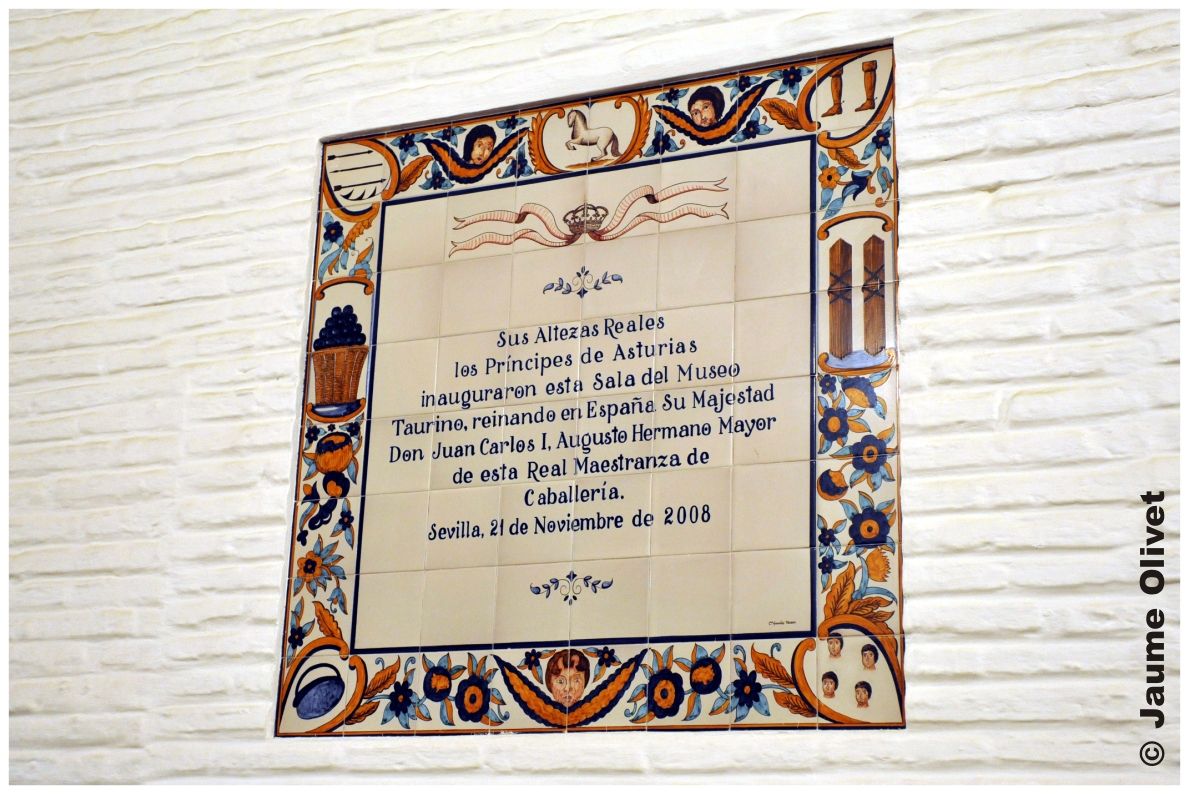 Sus Altezas Reales
los Príncipes de Asturias
inauguraron esta Sala del Museo
Taurino, reinando en España Su Majestad
Don Juan Carlos I, Augusto Hermano Mayor
de esta Real Maestranza de
Caballería.
Sevilla, 21 de Noviembre de 2008
© Jaume Olivet